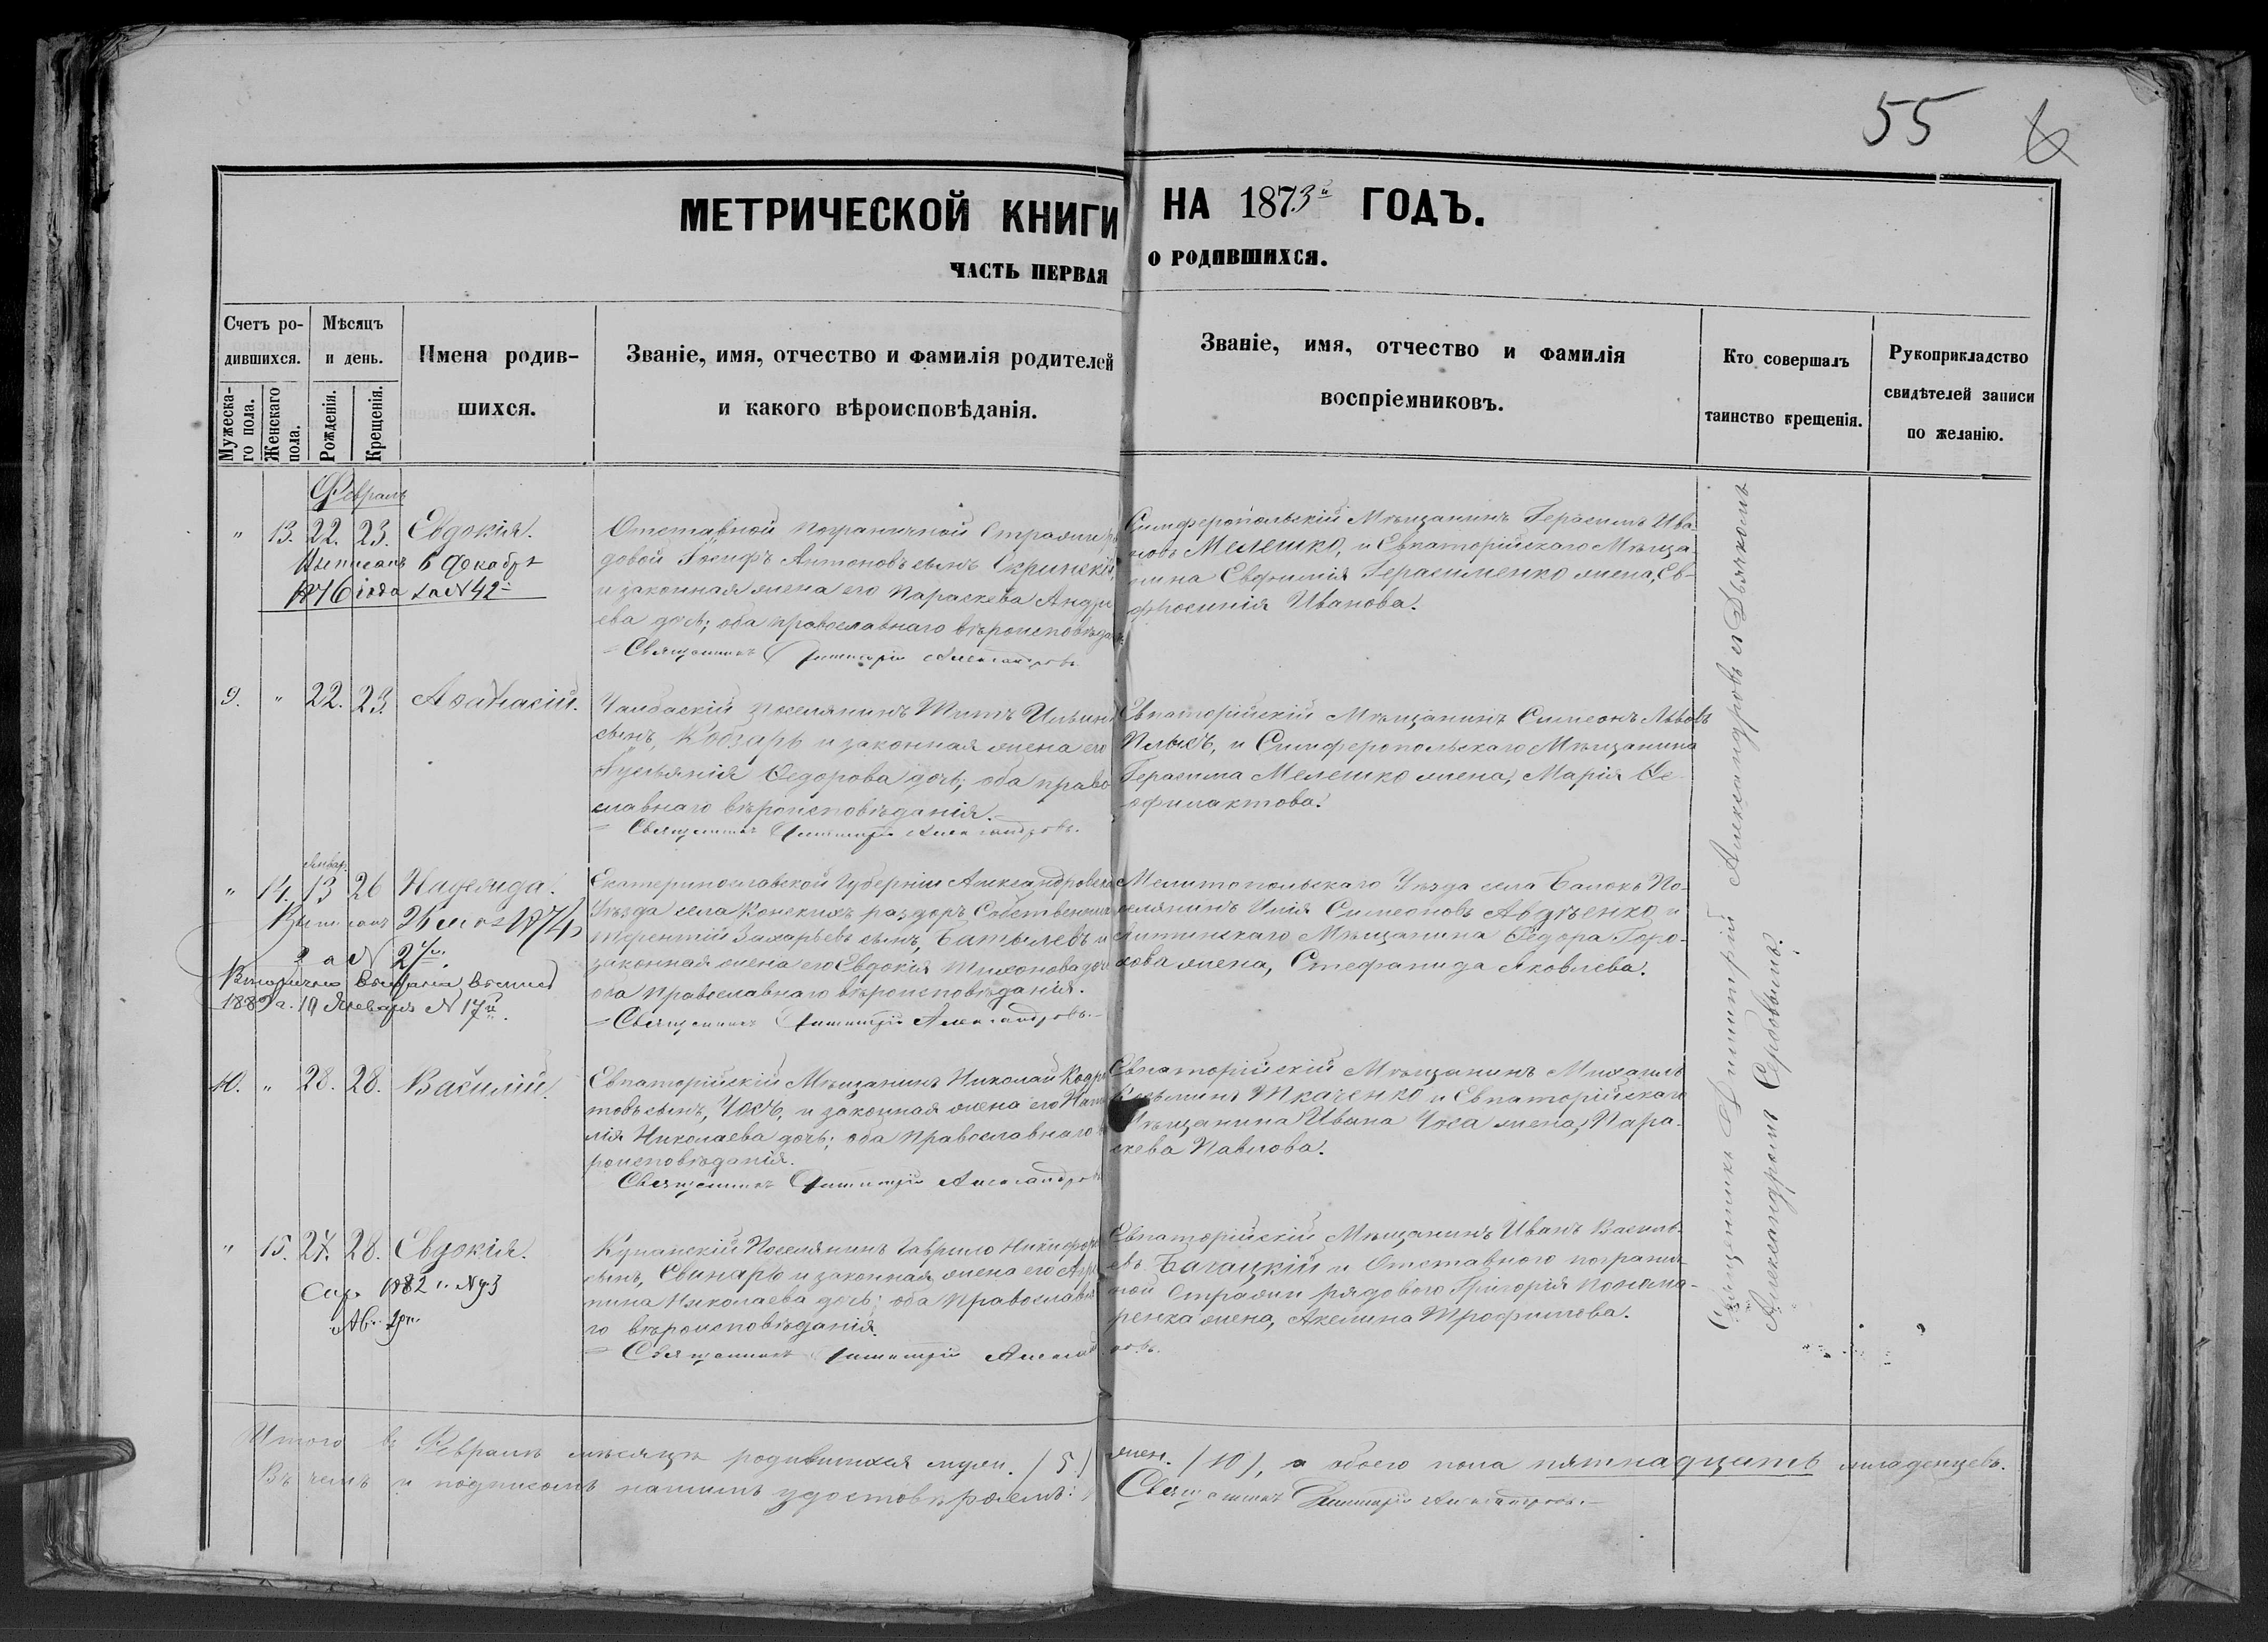 55
МЕТРИЧЕСКОЙ КНИГИ НА 1873й ГОДЪ.
ЧАСТЬ ПЕРВАЯ О РОДИВШИХСЯ.
Счетъ ро-
дившихся.
Мужеска-
го пола.
Женскаго
пола.
Мѣсяцъ
и день.
Рожденія.
Крещенія.
Имена родив-
шихся.
Званіе, имя, отчество и фамилія родителей
и какого вѣроисповѣданія.
Званіе, имя, отчество и фамилія
воспріемниковъ.
Кто совершалъ
таинство крещенія.
Рукоприкладство
свидѣтелей записи
по желанію.
Февраль
" 13. 22. 23. Евдокія.
Выписанъ 6 Декабря
1876 года за N 42
Отставной пограничной Стражи ря
довой Іосифъ Антоновъ сынъ Скринскій,
и законная жена его Параскева Андре
ева дочь; оба православнаго вѣроисповѣдан
Священникъ Димитрій Александровъ
Симферопольскій Мѣщанинъ Герасимъ Ива-
новъ Мелешко, и Евпаторійскаго Мѣща-
нина Евфимія Герасименко жена, Ев-
фросинія Иванова.
9. " 22. 23. Аѳанасій.
Чалбаскій поселянинъ Титъ Ильинъ
сынъ, Кобзарь и законная жена его
Іуліанія Ѳедорова дочь; оба право
славнаго вѣроисповѣданія.
Священникъ Димитрій Александровъ.
Евпаторійскій Мѣщанинъ Симеонъ Львовъ
и Симферопольскаго Мѣщанина
Герасима Мелешко жена, Марія Ѳе-
офилактова.
Январ.
" 14. 13 26 Надежда.
Выписанъ 1874
за N 27й.
Вторично выписана
1889 г. 19 Января N 17й.
Екатеринославской Губерніи Александровска
Уѣзда села Конскихъ раздоръ Собственникъ
Терентій Захарьевъ сынъ, Батылевъ и
законная жена его Евдокія Тихонова дочь
оба православнаго вѣроисповѣданія.
Священникъ Димитрій Александровъ.
Мелитопольскаго Уѣзда села Балокъ По-
селянинъ Илія Симеоновъ Авдѣенко и
Мѣщанина Ѳедора Горо-
хова жена, Стефанида Яковлева.
10. " 28. 28. Василій.
Евпаторійскій Мѣщанинъ Николай Кодра
товъ сынъ, Чосъ, и законная жена его Ната
лія Николаева дочь; оба православнаго вѣ
роисповѣданія.
Священникъ Димитрій Александровъ
Евпаторійскій Мѣщанинъ Михаилъ
Кузьминъ Ткаченко и Евпаторійскаго
Мѣщанина Ивана Чоса жена, Пара-
скева Павлова.
" 15. 27. 28. Евдокія.
1882 г. N 93
Копанскій Поселянинъ Гаврило Никифоро
сынъ, Свинарь и законная жена его Агри
пина Николаева дочь; оба православна
го вѣроисповѣданія.
Священникъ Димитрій Александровъ.
Евпаторійскій Мѣщанинъ Иванъ Василь-
евъ Багацкій и Отставного погранич
ной Стражи рядового Григорія Понома-
ренка жена, Акилина Трофимова.
Священникъ Димитрій Александровъ съ Дьячкомъ
Александромъ Сербовымъ.
Итого въ Февралѣ мѣсяцѣ родившихся муж. /5/ жен. /10/, а обоего пола пятнадцать младенцевъ.
Въ чемъ и подписомъ нашимъ удостовѣряемъ: Священникъ Димитрій Александровъ.